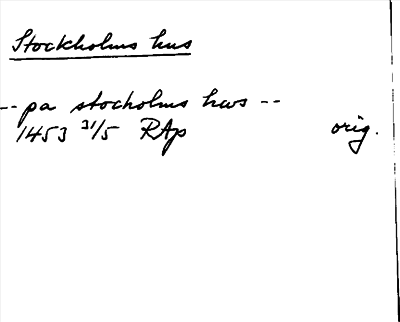 Stockholms hus
-- pa stocholms hws --
1453 31/5 RAp orig.